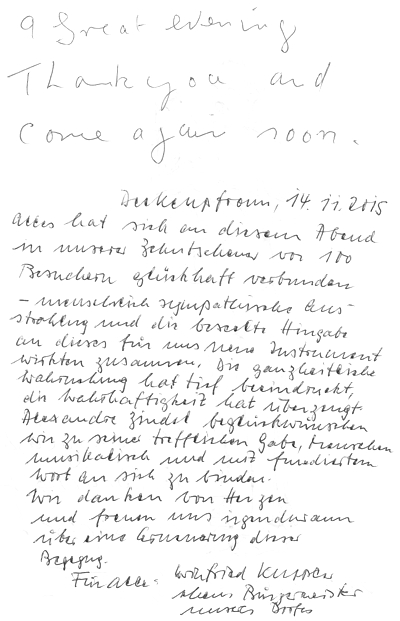 A great evening
Thank you and
come again soon.
Deckenpfronn, 14.11.2015
Alles hat sich an diesem Abend
in unserer Zehntscheuer vor 100
Besuchern glückhaft verbunden
- menschlich sympathische Aus-
strahlung und die beseelte Hingabe
an dieses für uns neue Instrument
wirkten zusammen. Die ganzheitliche
Wahrnehmung hat tief beeindruckt,
die Wahrhaftigkeit hat überzeugt.
Alexandre Zindel beglückwünschen
wir zu seiner trefflichen Gabe, Menschen
musikalisch und mit fundiertem
Wort an sich zu binden.
Wir danken von Herzen
und freuen uns irgendwann
über eine Erneuerung dieser
Begegng.
Für alle: Winfried
Bürgermeister
unseres Dorfes